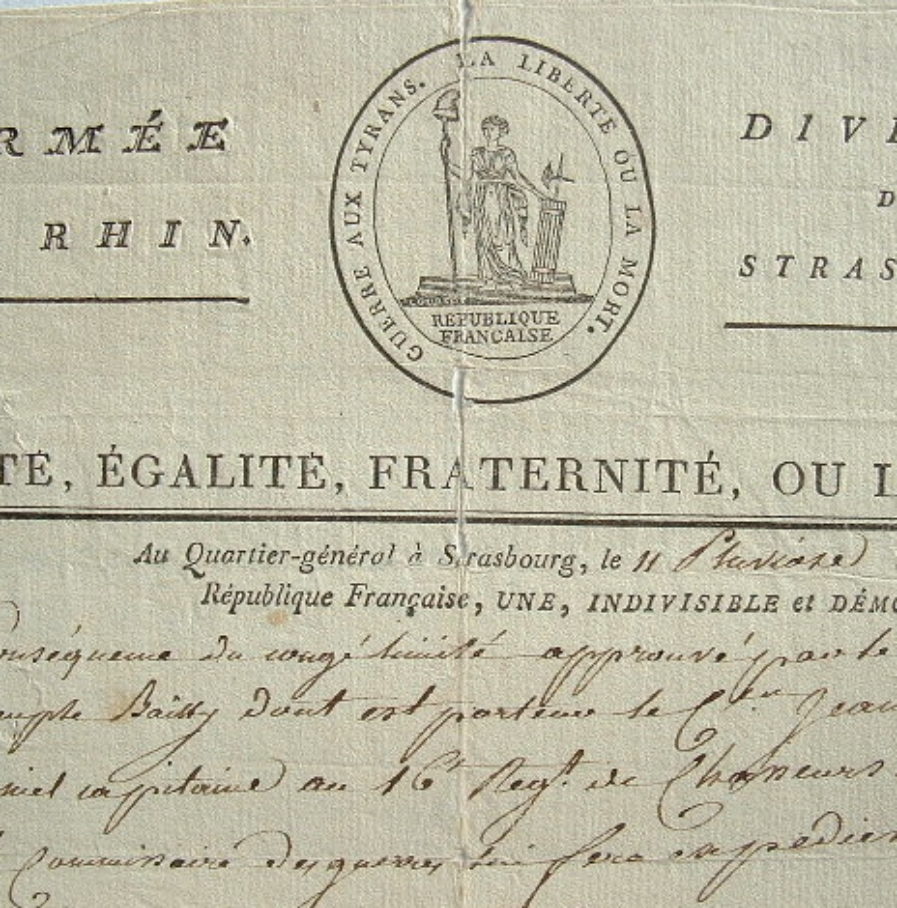 RMÉE
RHIN.
GUERRE AUX TYRANS. LA LIBERTÉ OU LA MORT.
REPUBLIQUE
FRANÇAISE
DIVI
D
STRAS
TÉ, ÉGALITÉ, FRATERNITÉ, OU L
Au Quartier-général à Strasbourg, le 11 Pluviose
République Française, UNE, INDIVISIBLE et DÉMO
onséquence du congé limité approuvé par le
Bailly dont est porteur le C.en Jean
niel capitaine au 16e Regt. de Chasseurs
Commissaire des guerres lui fera expedier